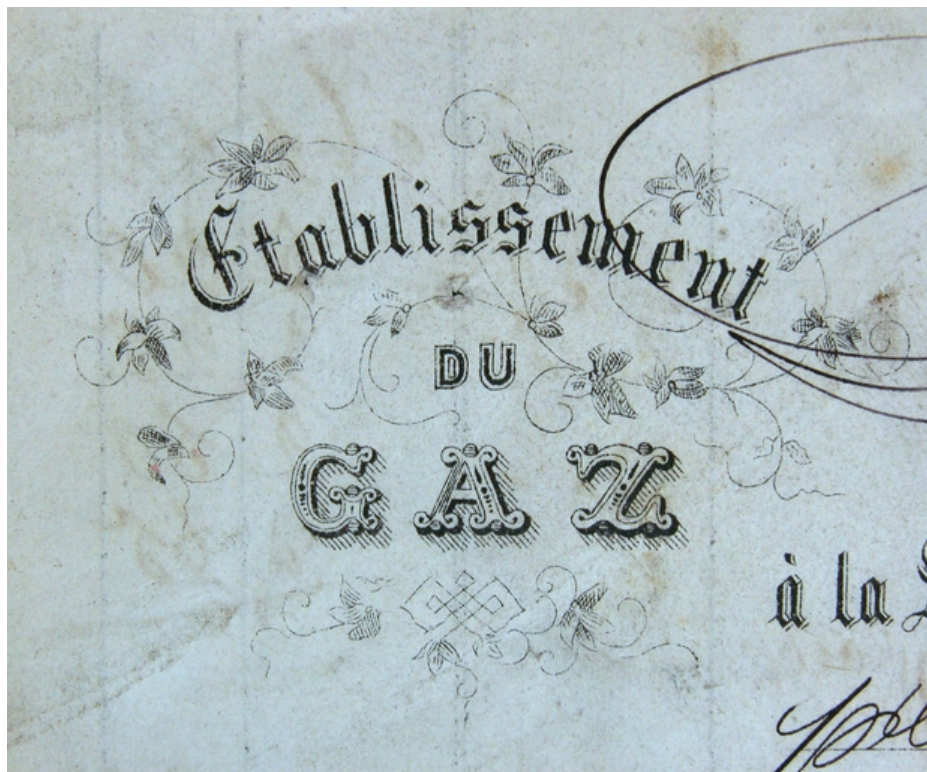 Etablissement
DU
GAZ
à la